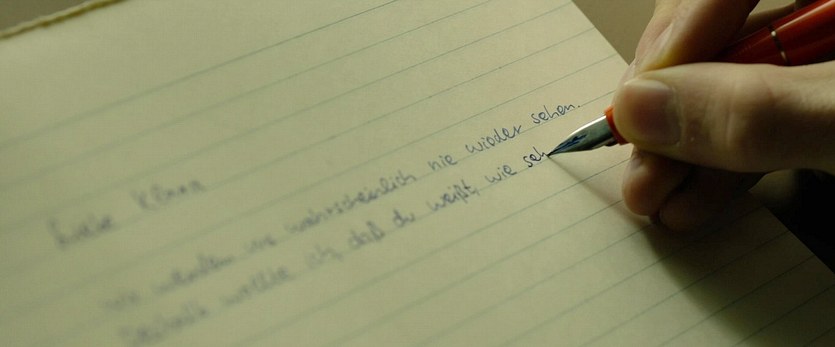 Liebe Klara
wir werden uns wahrscheinlich nie wieder sehen.
Deshalb wollte ich, daß du weißt, wie seh